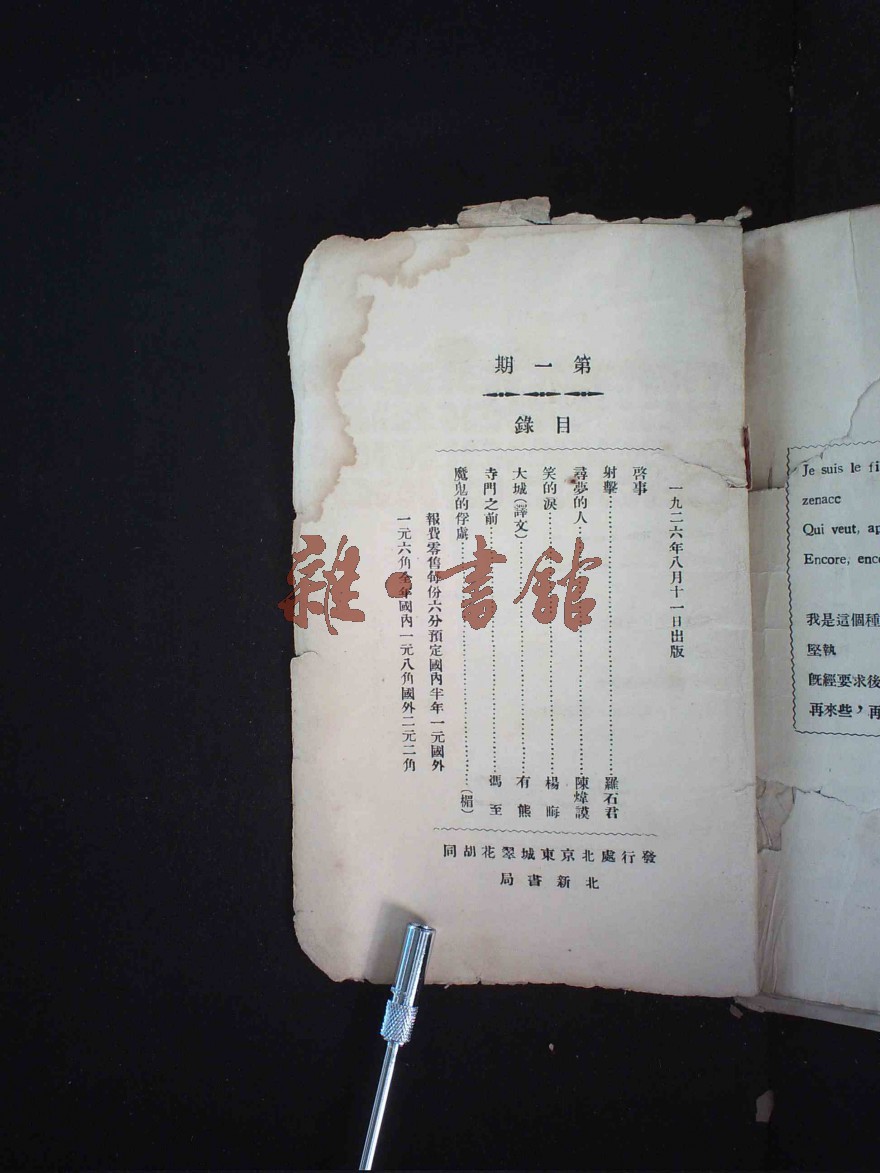 第一期
目錄
一九二六年八月十一日出版
啓事
射擊……羅石君
尋夢的人……陳煒謨
笑的淚……楊晦
大城(譯文)……有熊
寺門之前……馮至
魔鬼的俘虜……(楣)
報費零售每份六分預定國內半年一元國外
一元六角全年國內一元八角國外二元二角
發行處北京東城翠花胡同
北新書局
雜·書館
Je suis le fi
zenacc
Qui veut, ap
Encore, enc
我是這個種
堅執
旣經要求後
再來些，再